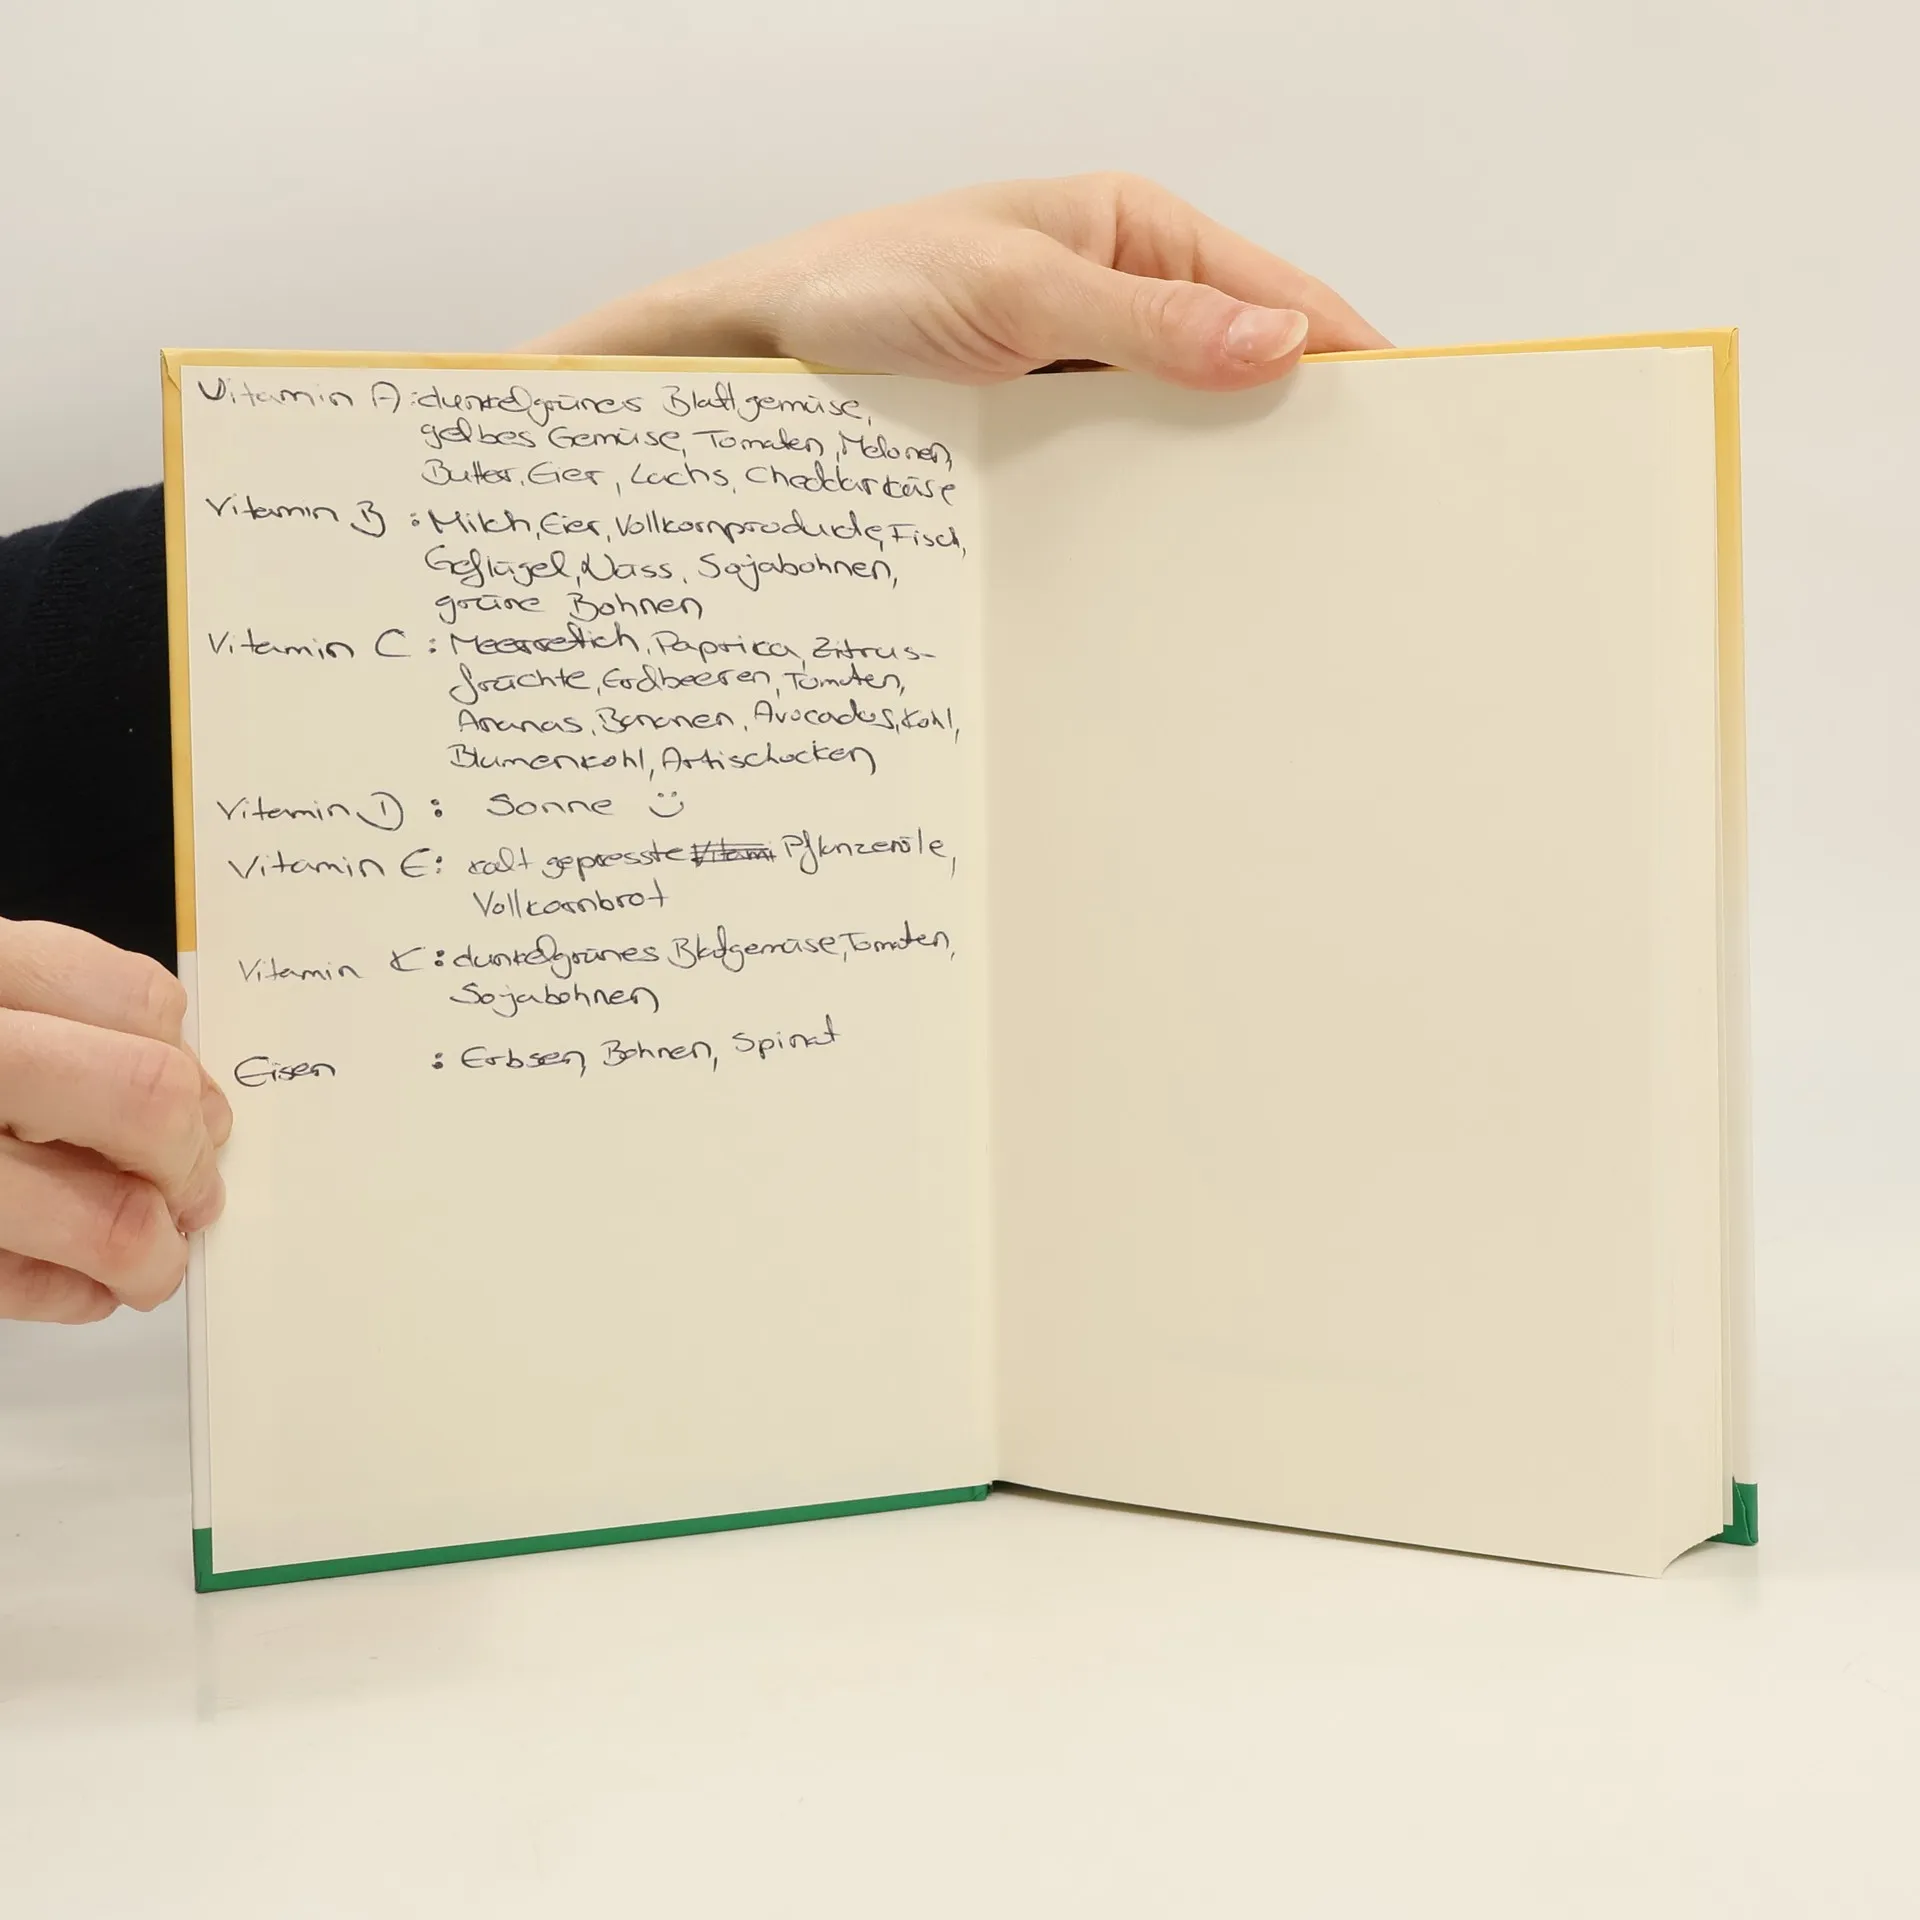 Vitamin A: dunkelgrünes Blattgemüse,
gelbes Gemüse, Tomaten, Melonen,
Butter, Eier, Lachs, Cheddarkäse
Vitamin B : Milch, Eier, Vollkornprodukte, Fisch,
Geflügel, Nüss, Sojabohnen,
grüne Bohnen
Vitamin C : Meerrettich, Paprika, Zitrus-
früchte, Erdbeeren, Tomaten,
Ananas, Bananen, Avocados, Kohl,
Blumenkohl, Artischocken
Vitamin D : Sonne
Vitamin E: kalt gepresste Pflanzenöle,
Vollkornbrot
Vitamin K : dunkelgrünes Blattgemüse, Tomaten,
Sojabohnen
Eisen : Erbsen, Bohnen, Spinat